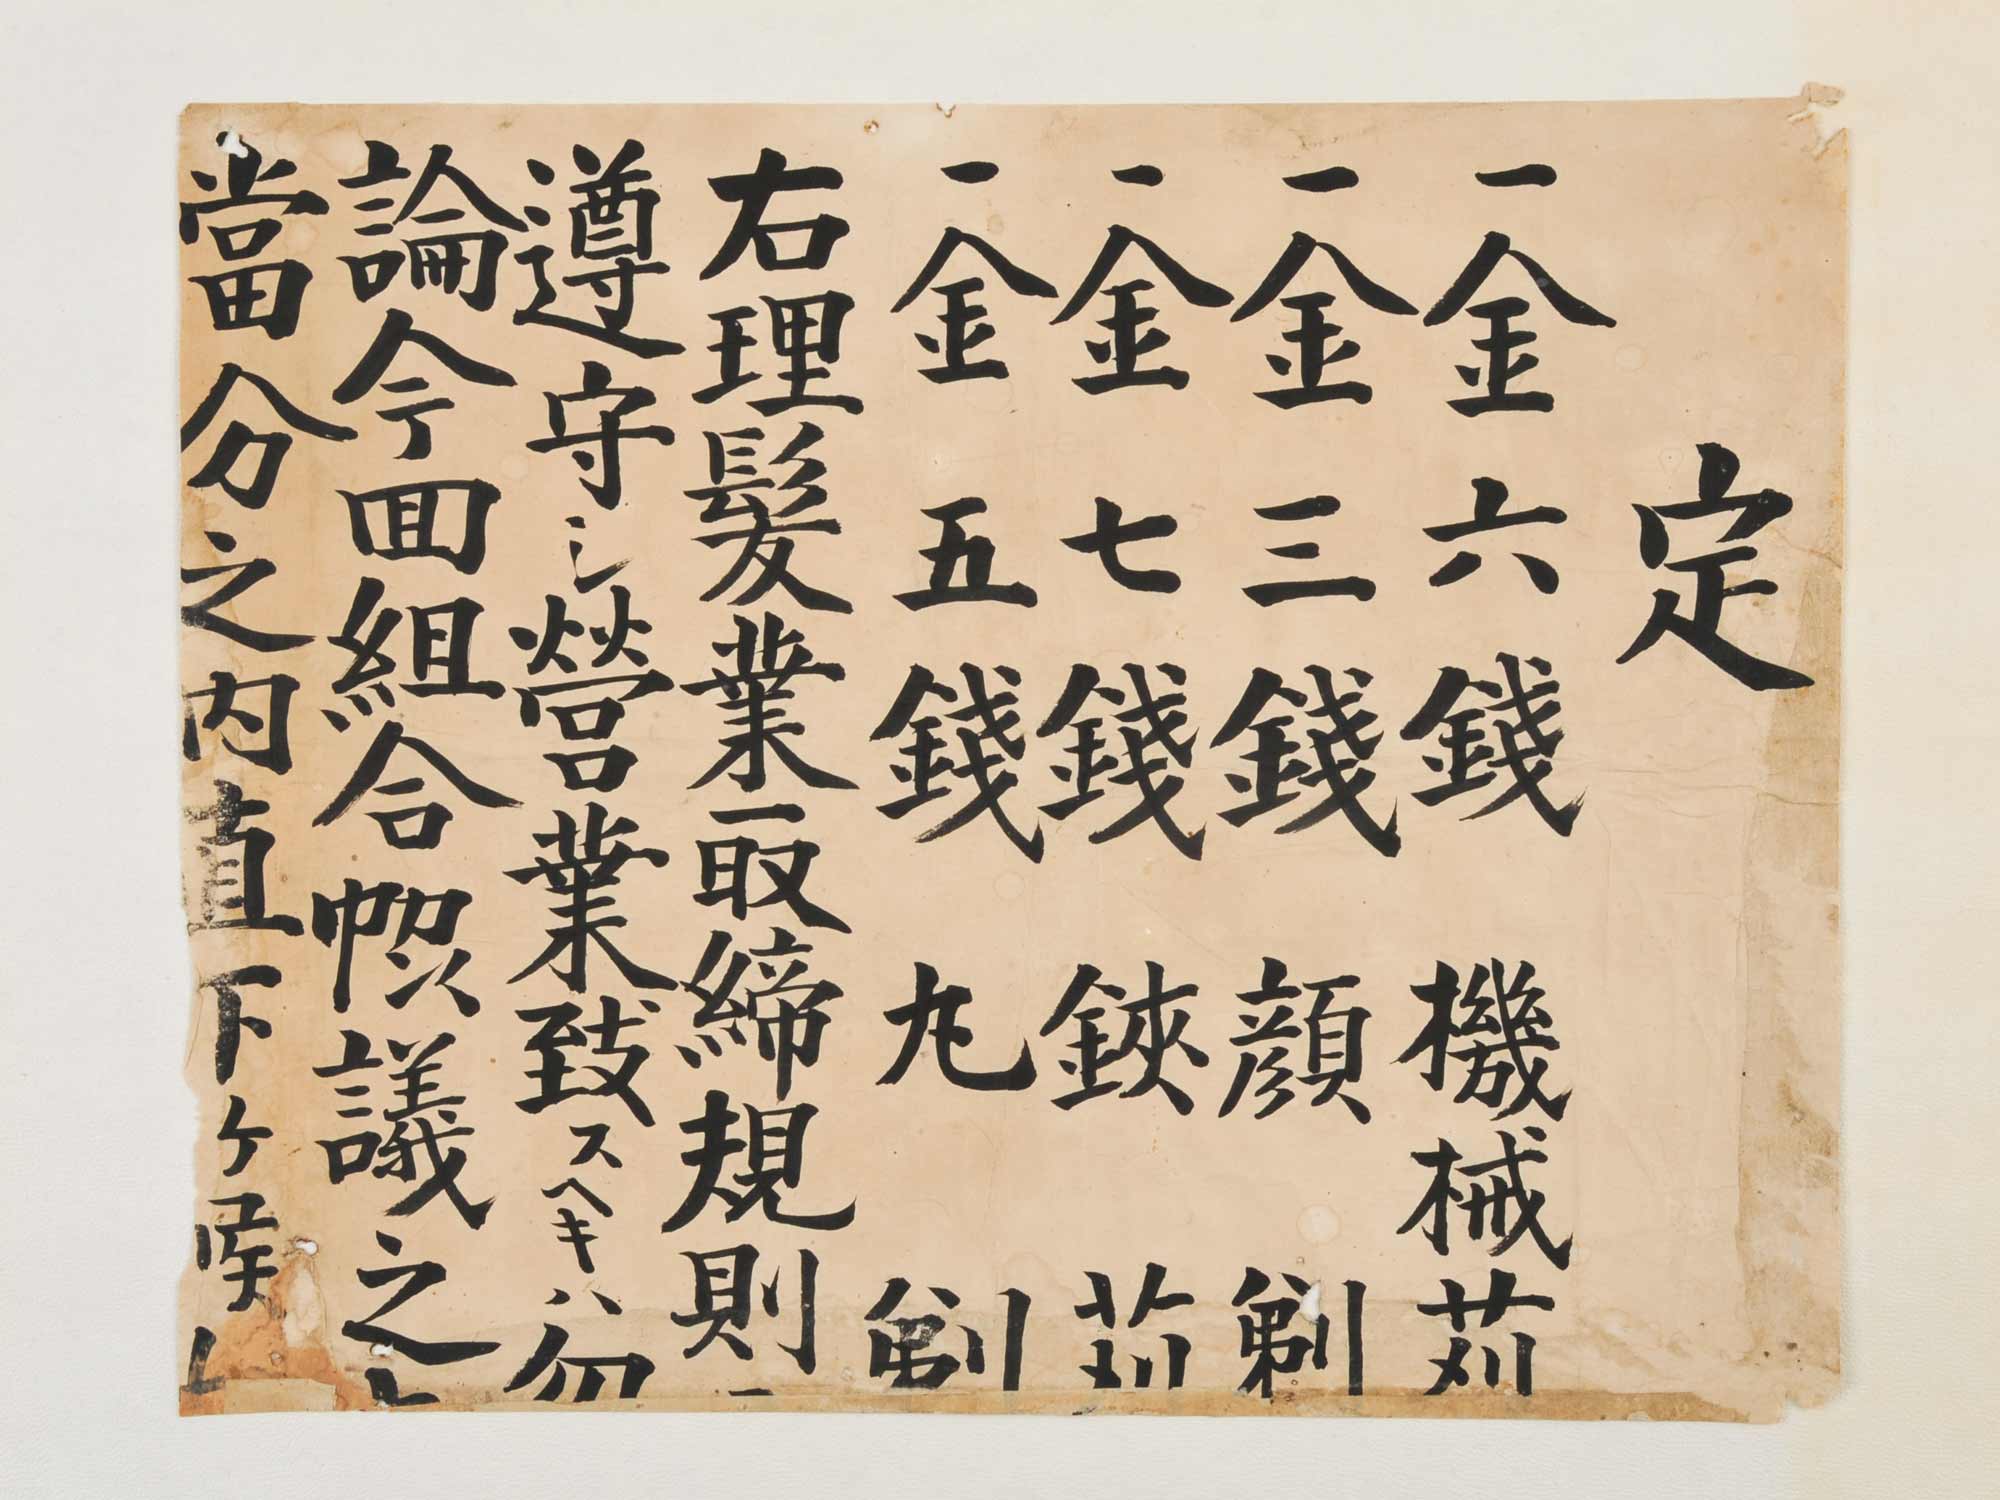 定
一金六錢 機械苅
一金三錢 顔剃
一金七錢 鋏苅
一金五錢 丸剃
右理髪業取締規則
遵守シ營業致スヘキハ勿
論今回組合帋議之
當分之内直下ケ候